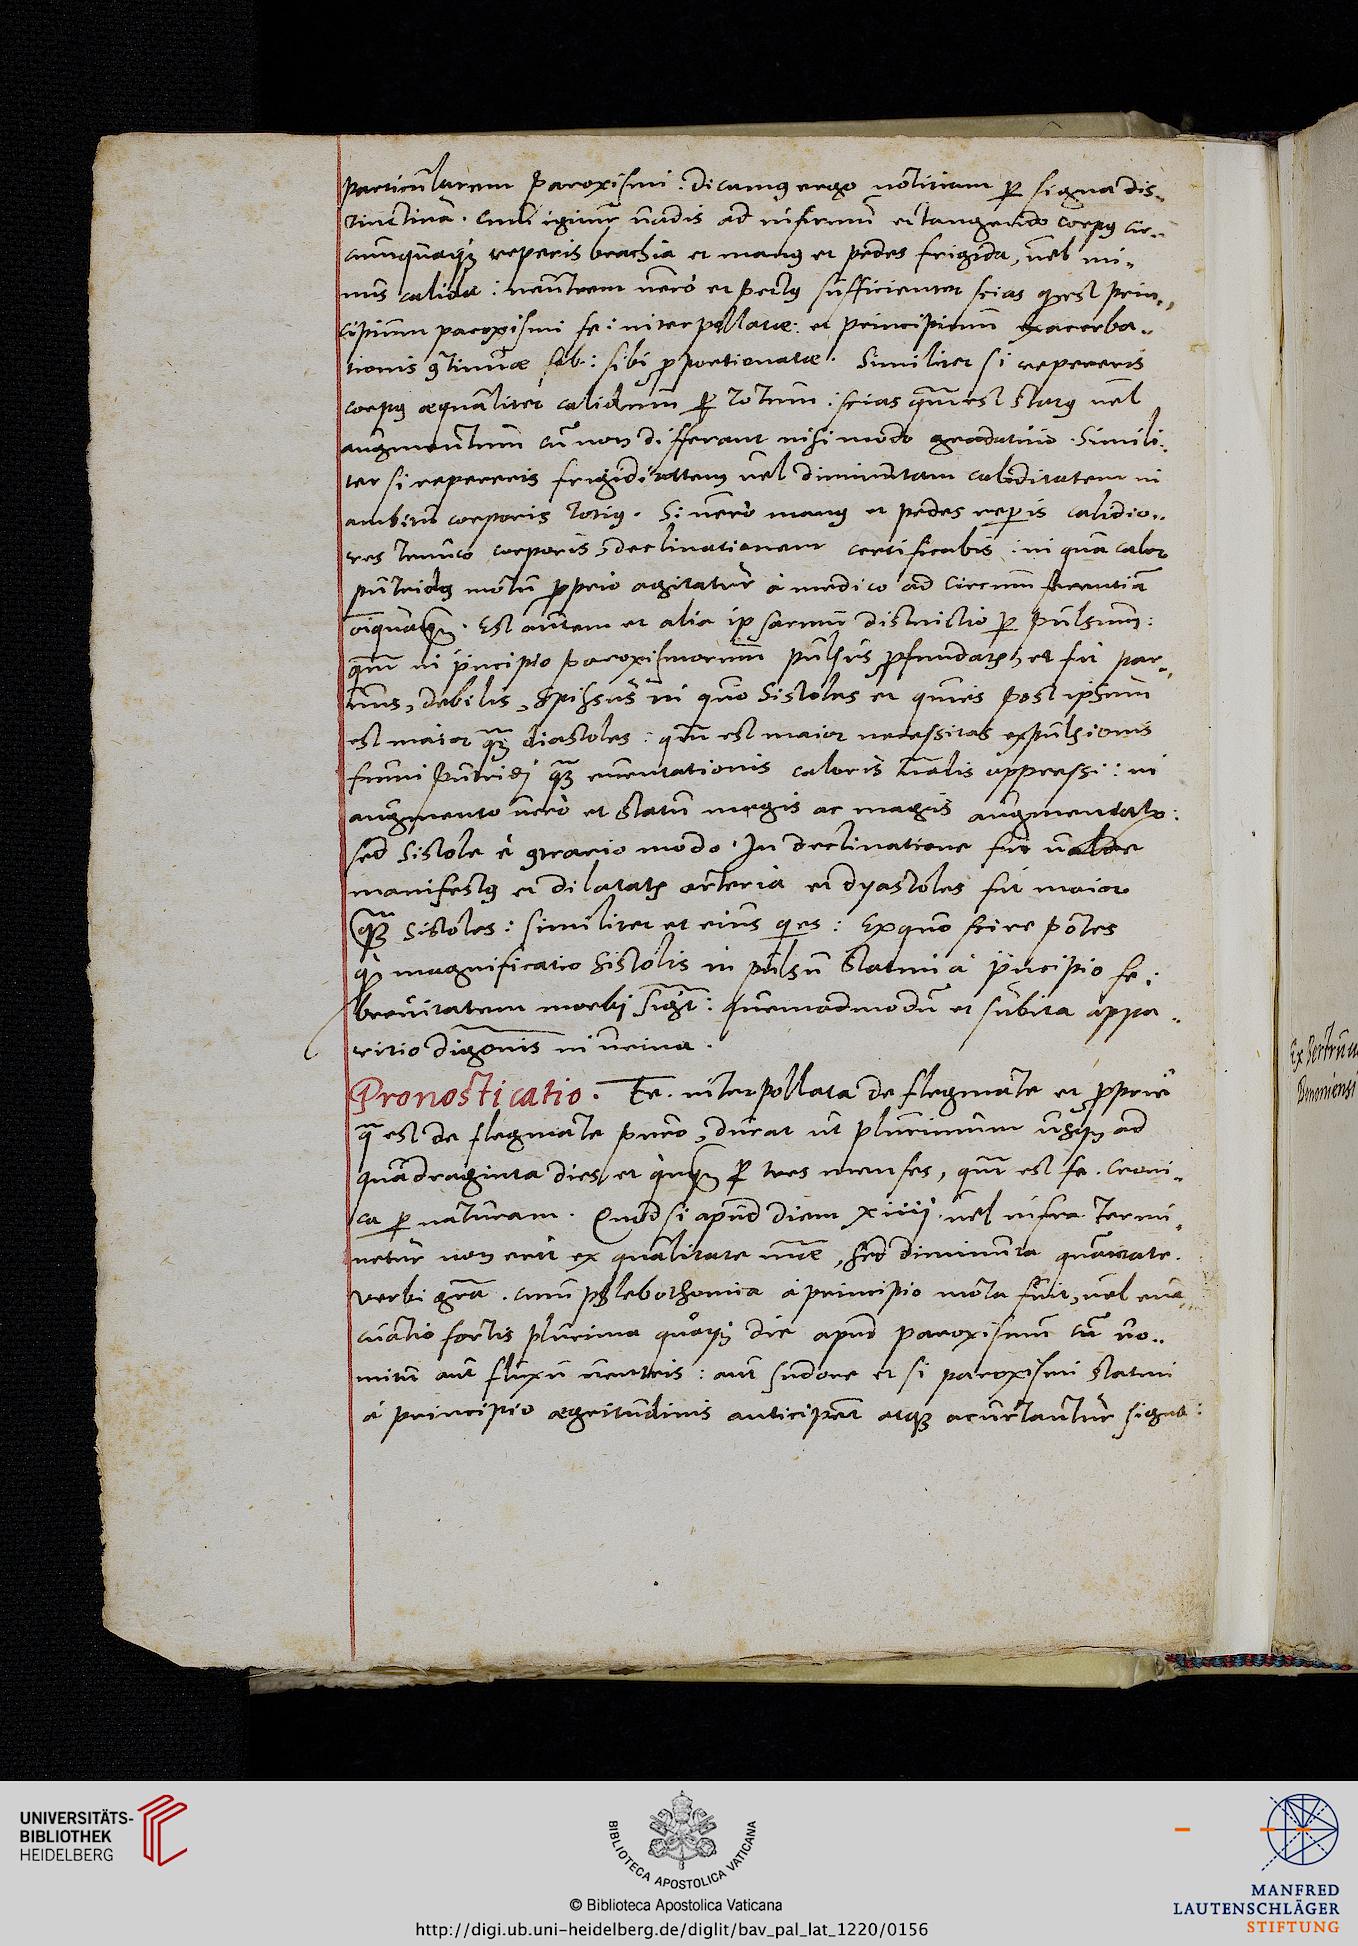 particularem paroxismi: dicamus ergo notitiam per signa dis-
tinctiua. Cum igitur uadis ad infirmum et tangendo corpus cir-
cumquaque reperis brachia et manus et pedes frigida, uel mi-
nus calida: uentrem uero et pectus sufficienter scias quod est prin-
cipium paroxismi fe: interpollatae: et principium exacerba-
tionis continuae feb: sibi proportionatae. Similiter si repereris
corpus aequaliter calidum per totum: scias quoniam est status uel
augmentum cum non differant nisi modo graduatiuo. Simili-
ter si repereris frigiditatem uel diminutam caliditatem in
ambitu corporis totius. Si uero manus et pedes reperis calidio-
res trunco corporis, declinationem certificabis: in qua calor
putridus motu proprio agitatur à medico ad circumferentiam
undiquaque. Est autem et alia ipsarum districtio per pulsum:
quoniam in principio paroxismorum pulsus profundatur, et fit par-
uus, debilis, spissus in quo Sistoles et quies post ipsum
est maior quam diastoles: quoniam est maior necessitas expulsionis
fumi putridi quam euentationis caloris naturalis oppressi: in
augmento uero et statu magis ac magis augmentatur:
sed Sistole è contrario modo. In declinatione fit ualde
manifestus et dilatatur arteria et dyastoles fit maior
quam Sistoles: similiter et eius quies: Ex quo scire potes
quod magnificatio Sistolis in pulsu statim à principio fe:
breuitatem morbi significat: quemadmodum et subita appa-
ritio digestionis in urina.
Pronosticatio. Fe. interpollata de flegmate et proprie
quae est de flegmate puro, durat ut plurimum usque ad
quadraginta dies, et quandoque per tres menses, quoniam est fe. croni-
ca per naturam. Quod si apud diem xiiii. uel infra termi-
netur non erit ex qualitate materiae, sed diminuta quantitate.
Verbi gratia. cum phlebothomia à principio mota fuit, uel eua-
cuatio fortis plurima quoque die apud paroxismum cum uo-
mitu aut fluxu uentris: aut sudore et si paroxismi statim
à principio aegritudinis anticipent atque acurtantur signa:
Ex Bertruc
Bononiensi
UNIVERSITÄTS-
BIBLIOTHEK
HEIDELBERG
BIBLIOTECA APOSTOLICA VATICANA
© Biblioteca Apostolica Vaticana
http://digi.ub.uni-heidelberg.de/diglit/bav_pal_lat_1220/0156
MANFRED
LAUTENSCHLÄGER
STIFTUNG